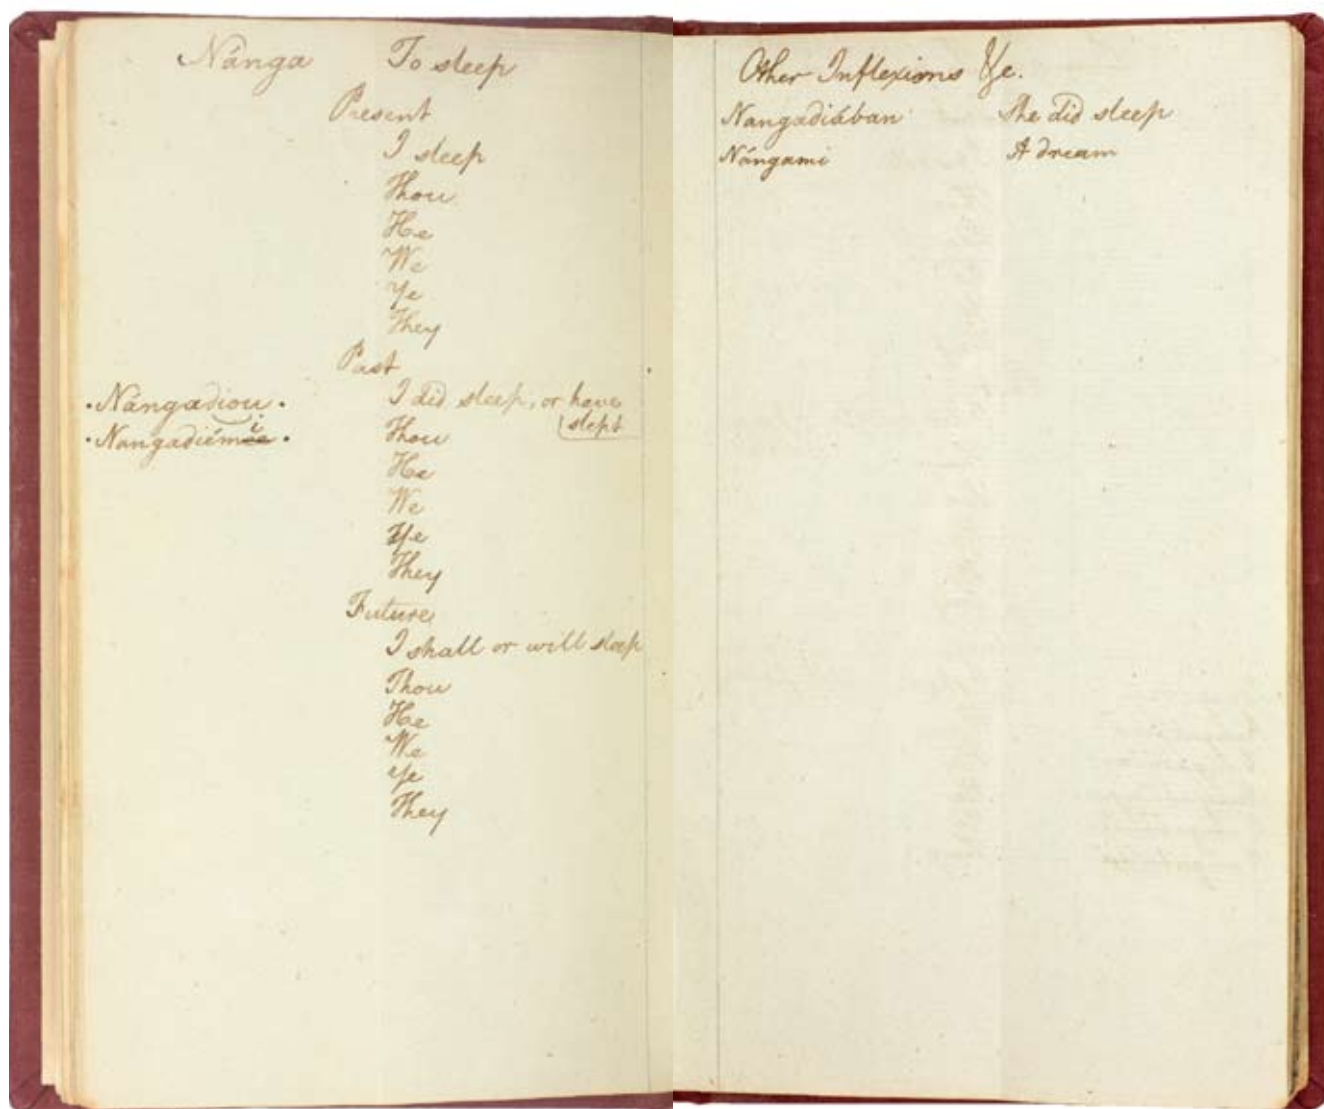 Nánga To sleep
Present
I sleep
Thou
He
We
Ye
They
Past
·Nángadiou· I did sleep, or have
slept
·Nangadiémi· Thou
He
We
Ye
They
Future
I shall or will sleep
Thou
He
We
Ye
They
Other Inflexions &c.
Nangadiában She did sleep
Nángami A dream